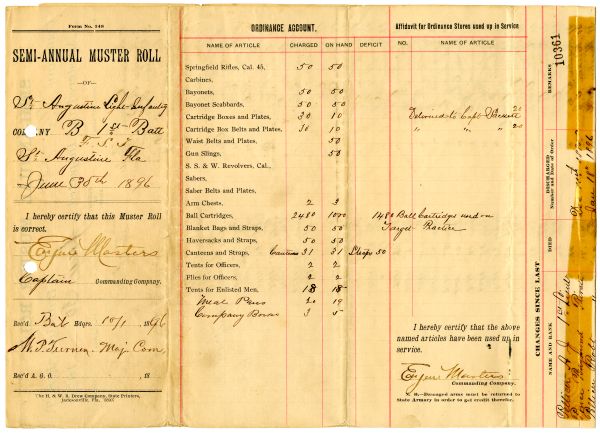 Form No. 148
SEMI-ANNUAL MUSTER ROLL
—OF—
St Augustine Light Infantry
COMPANY B 1st Batt
F. S. T
St Augustine Fla
June 30th 1896
I hereby certify that this Muster Roll
is correct.
Eugene Masters
Captain Commanding Company.
Rec'd Bat Hdqrs. 10/1 1896
Maj Com,
Rec'd A. G. O. 18
The H. & W. B. Drew Company, State Printers,
Jacksonville, Fla., 1893.
ORDINANCE ACCOUNT.
NAME OF ARTICLE CHARGED ON HAND DEFICIT
Springfield Rifles, Cal. 45, 50 50
Carbines,
Bayonets, 50 50
Bayonet Scabbards, 50 50
Cartridge Boxes and Plates, 30 10
Cartridge Box Belts and Plates, 30 10
Waist Belts and Plates, 50
Gun Slings, 50
S. S. & W. Revolvers, Cal.,
Sabers,
Saber Belts and Plates,
Arm Chests. 2 2
Ball Cartridges, 2480 1000
Blanket Bags and Straps, 50 50
Haversacks and Straps, 50 50
Canteens and Straps, Canteens 31 31 Straps 50
Tents for Officers, 2 2
Flies for Officers, 2 2
Tents for Enlisted Men, 18 18
Meat Pans 20 19
Company Boxes 3 5
Affidavit for Ordinance Stores used up in Service
NO. NAME OF ARTICLE
Delivered to Capt 20
" " " 20
1480 Ball Cartridges used in
Target Practice
I hereby certify that the above
named articles have been used up in
service.
Eugene Masters
Commanding Company.
N. B.—Damaged arms must be returned to
State Armory in order to get credit therefor.
CHANGES SINCE LAST
NAME AND RANK
DIED
DISCHARGED
Number and Date of Order
REMARKS
10361